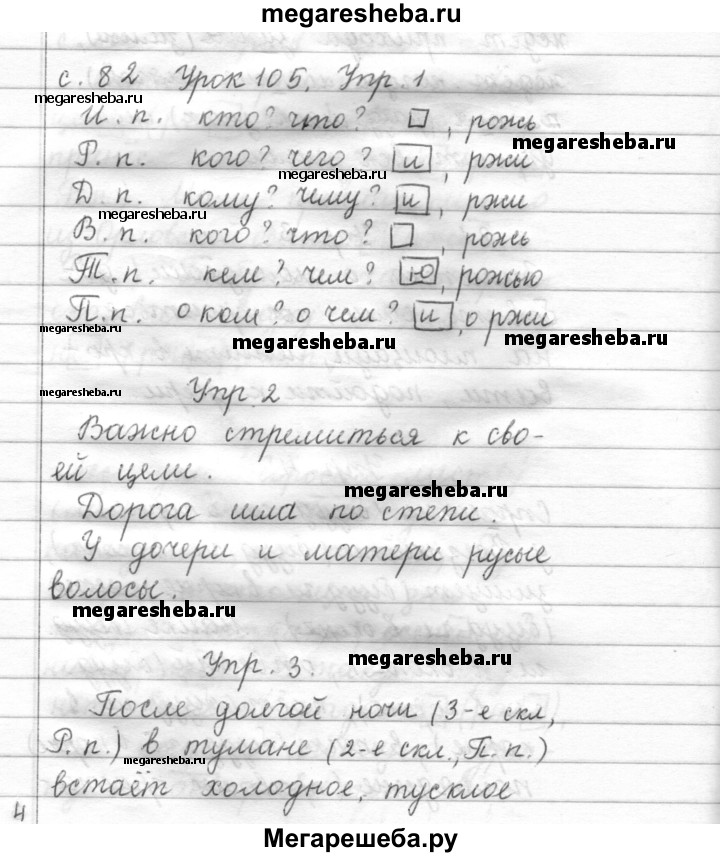 megaresheba.ru
с. 82 Урок 105. Упр. 1
megaresheba.ru
И. п. кто? что? □, рожь
megaresheba.ru
Р. п. кого? чего? и, ржи
megaresheba.ru
Д. п. кому? чему? и, ржи
megaresheba.ru
В. п. кого? что? □, рожь
Т. п. кем? чем? ю, рожью
П. п. о ком? о чем? и, о ржи
megaresheba.ru
megaresheba.ru
megaresheba.ru
Упр. 2
megaresheba.ru
Важно стремиться к сво-
ей цели.
megaresheba.ru
Дорога шла по степи.
У дочери и матери русые
волосы.
megaresheba.ru
Упр. 3.
megaresheba.ru
После долгой ночи (3-е скл,
Р. п.) в тумане (2-е скл., П. п.)
megaresheba.ru
встаёт холодное, тусклое
4
Мегарешеба.ру